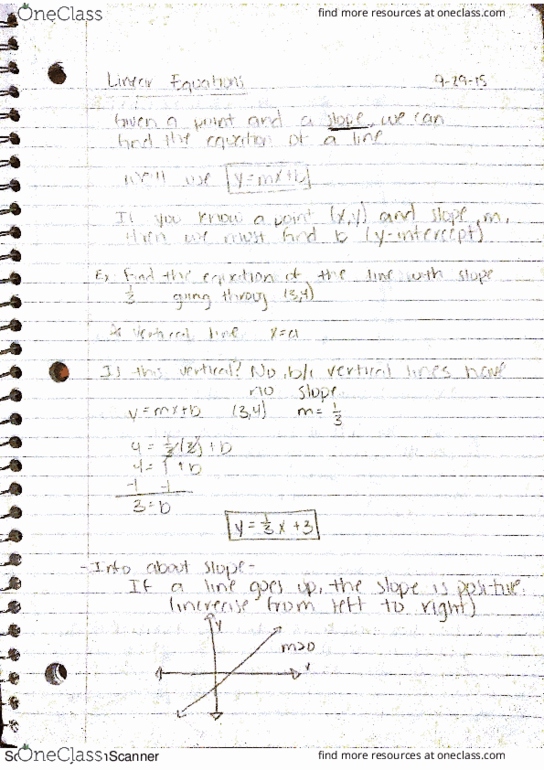 OneClass
find more resources at oneclass.com
Linear Equations 9-29-15
Given a point and a slope, we can
find the equation of a line
we'll use y=mx+b
If you know a point (x,y) and slope, m,
then we must find b (y-intercept)
Ex Find the equation of the line with slope
1/3 going through (3,4)
vertical line x=a
Is this vertical? No, b/c vertical lines have
no slope
y=mx+b (3,4) m=1/3
4=1/3(3)+b
4=1+b
-1 -1
3=b
y=1/3x+3
-Info about slope-
If a line goes up, the slope is positive.
(increase from left to right)
y
m>0
x
OneClass
Scanner
find more resources at oneclass.com